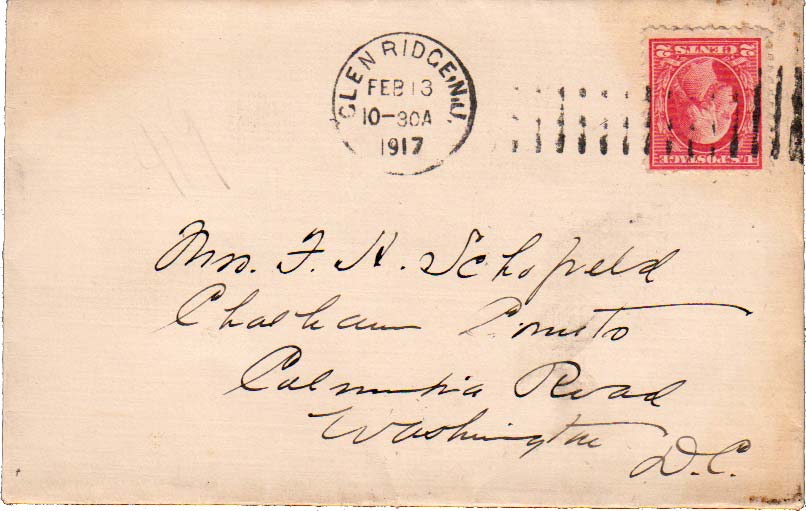 GLEN RIDGE, N.J.
FEB 13
10-30A
1917
2 CENTS 2
U.S. POSTAGE
Mrs. F. H. Schofield
Columbia Road
Washington
D.C.